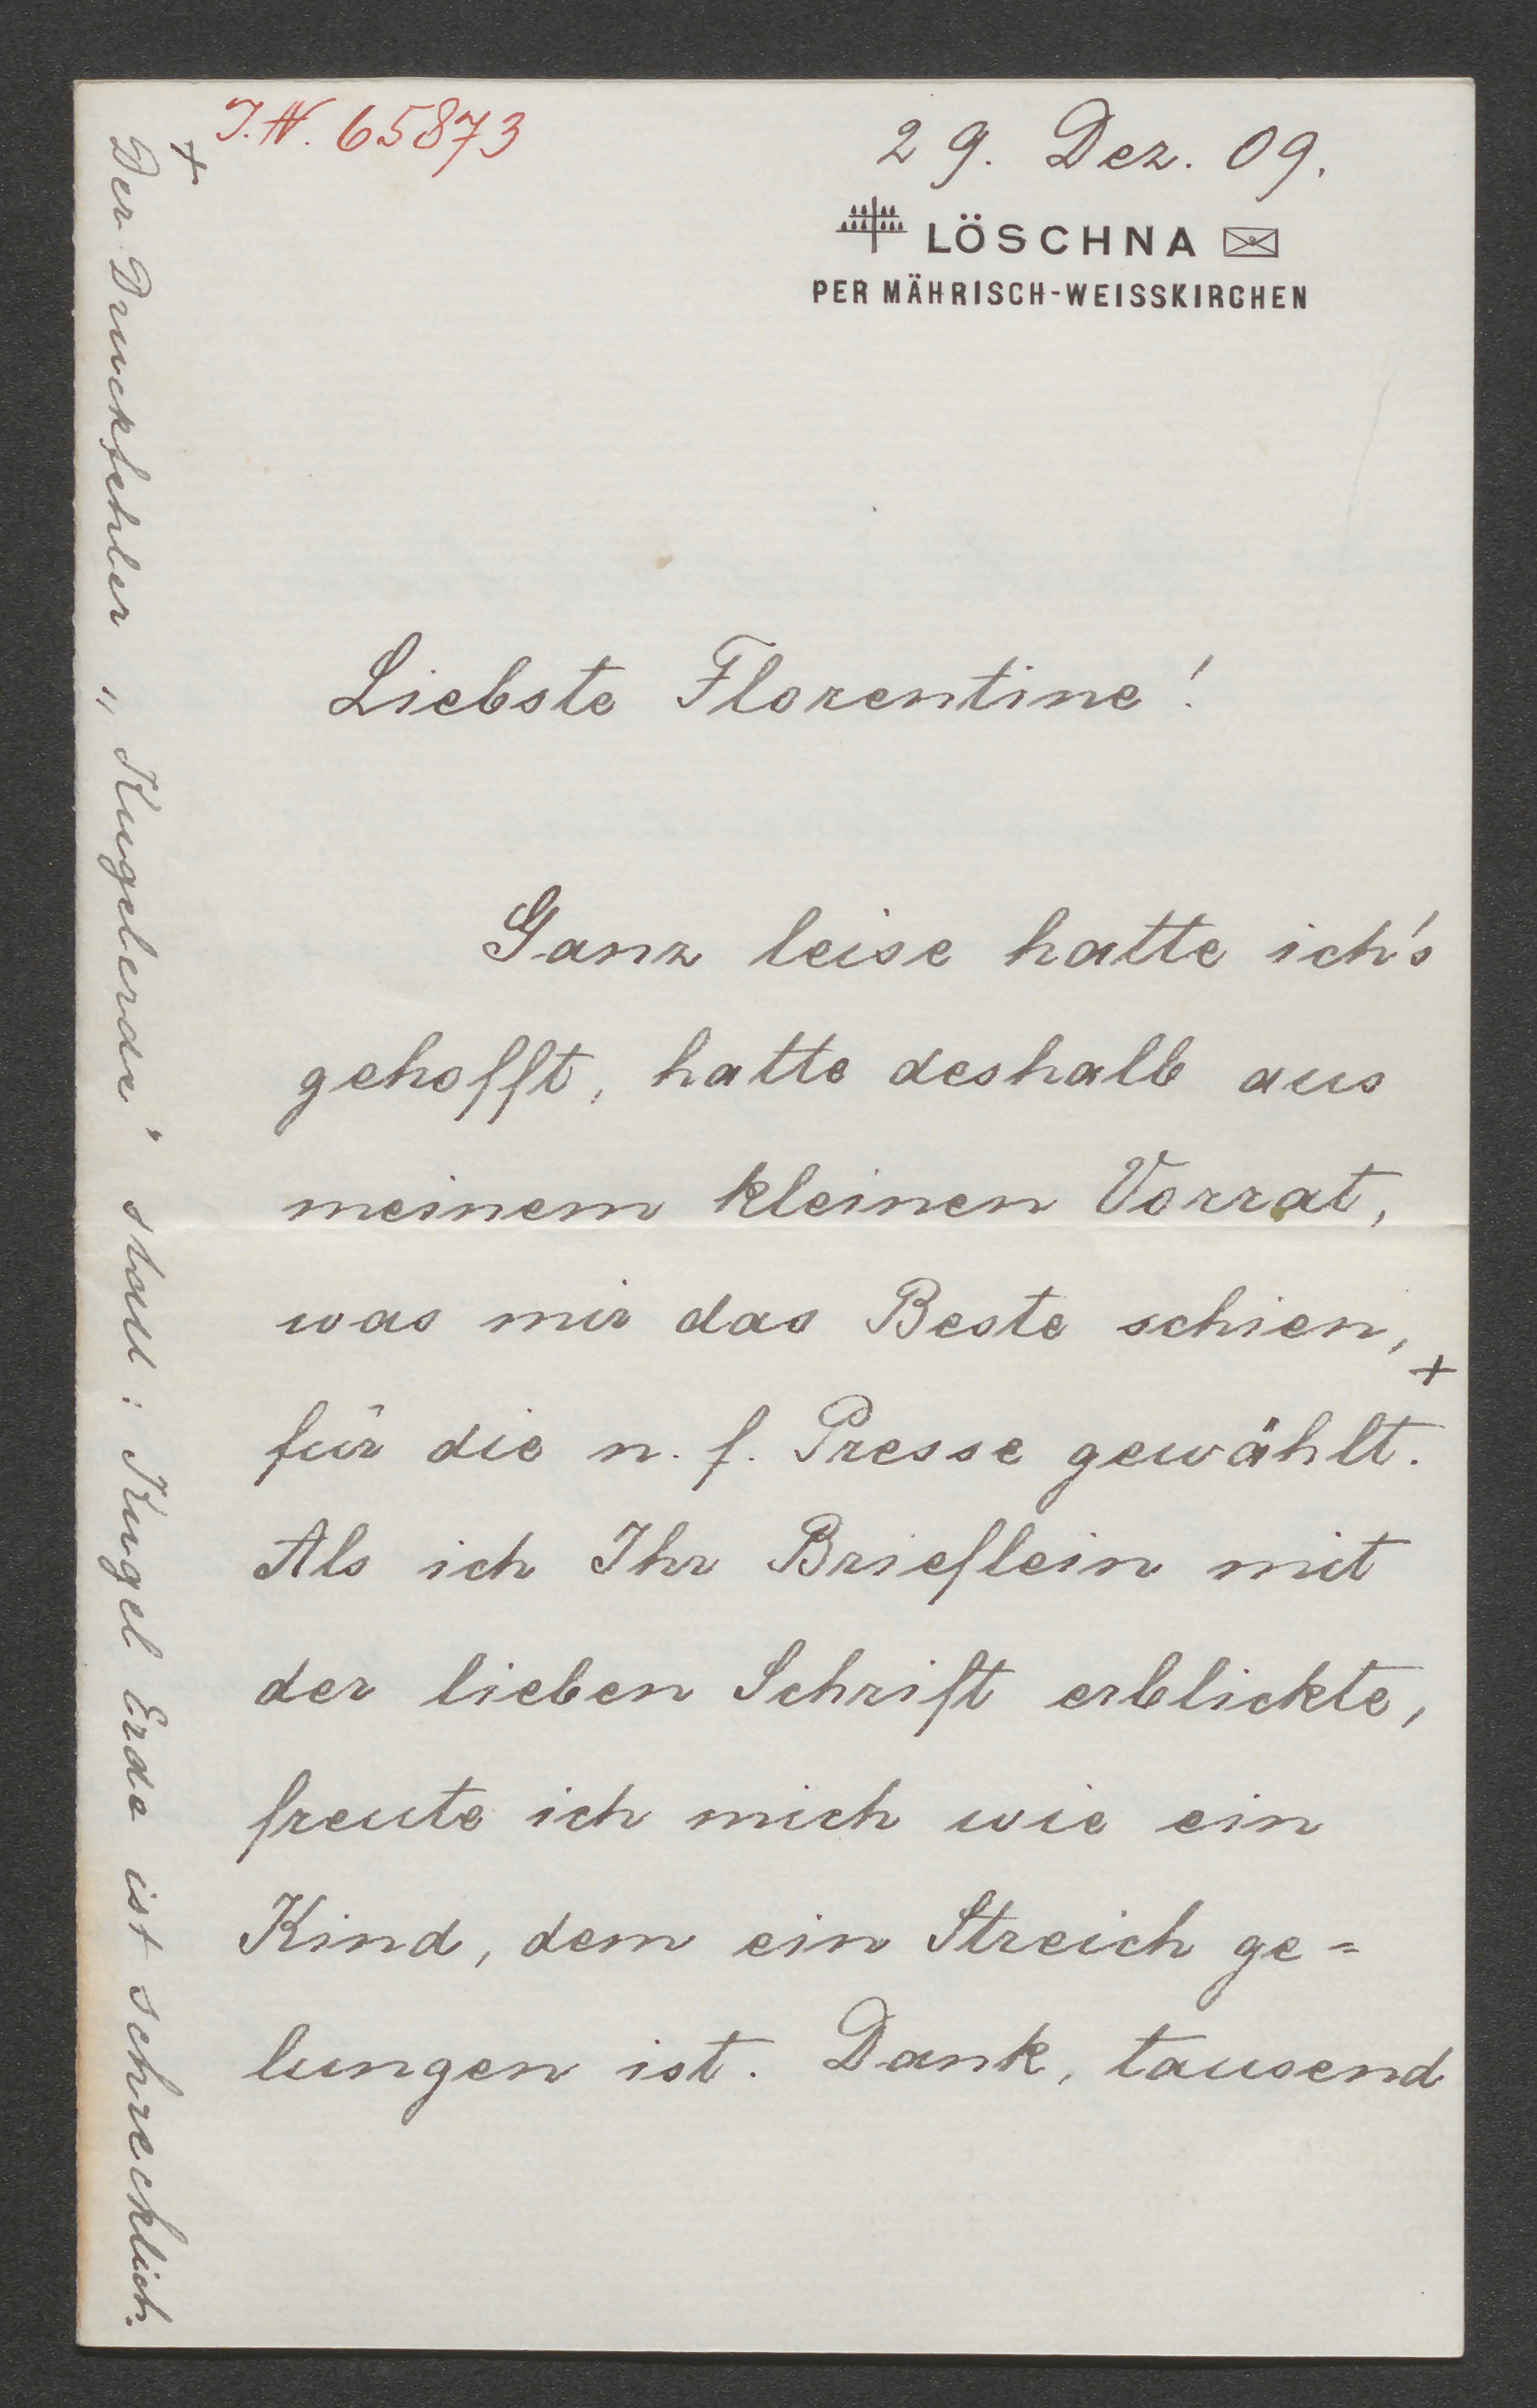 I.N. 65873
29. Dez. 09.
LÖSCHNA
PER MÄHRISCH-WEISSKIRCHEN
Liebste Florentine!
Ganz leise hatte ich's
gehofft, hatte deshalb aus
meinem kleinen Vorrat,
was mir das Beste schien, +
für die n. f. Presse gewählt.
Als ich Ihr Brieflein mit
der lieben Schrift erblickte,
freute ich mich wie ein
Kind, dem ein Streich ge=
lungen ist. Dank, tausend
+ Der Druckfehler „Kugelerde" statt: Kugel Erde ist schrecklich.